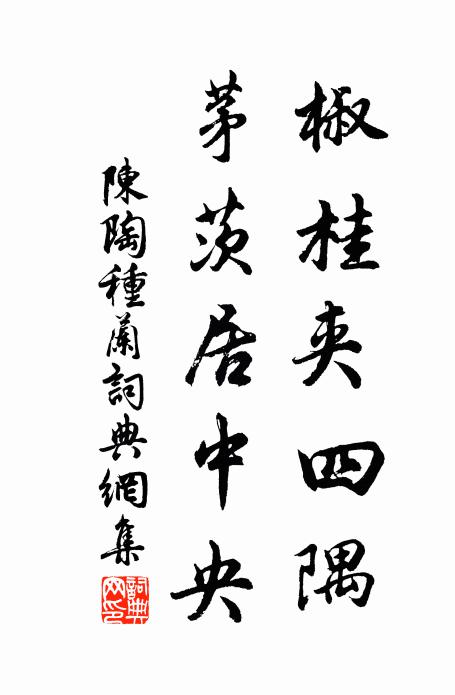 椒桂夾四隅
茅茨居中央
陳陶種蘭詞典網集
詞典網印